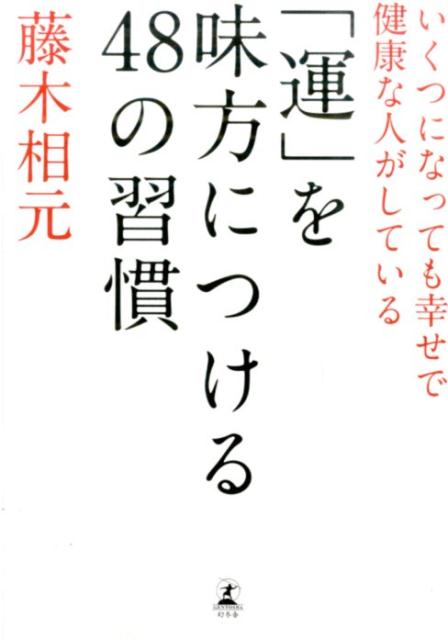 いくつになっても幸せで
健康な人がしている
「運」を
味方につける
48の習慣
藤木相元
GENTOSHA
幻冬舎